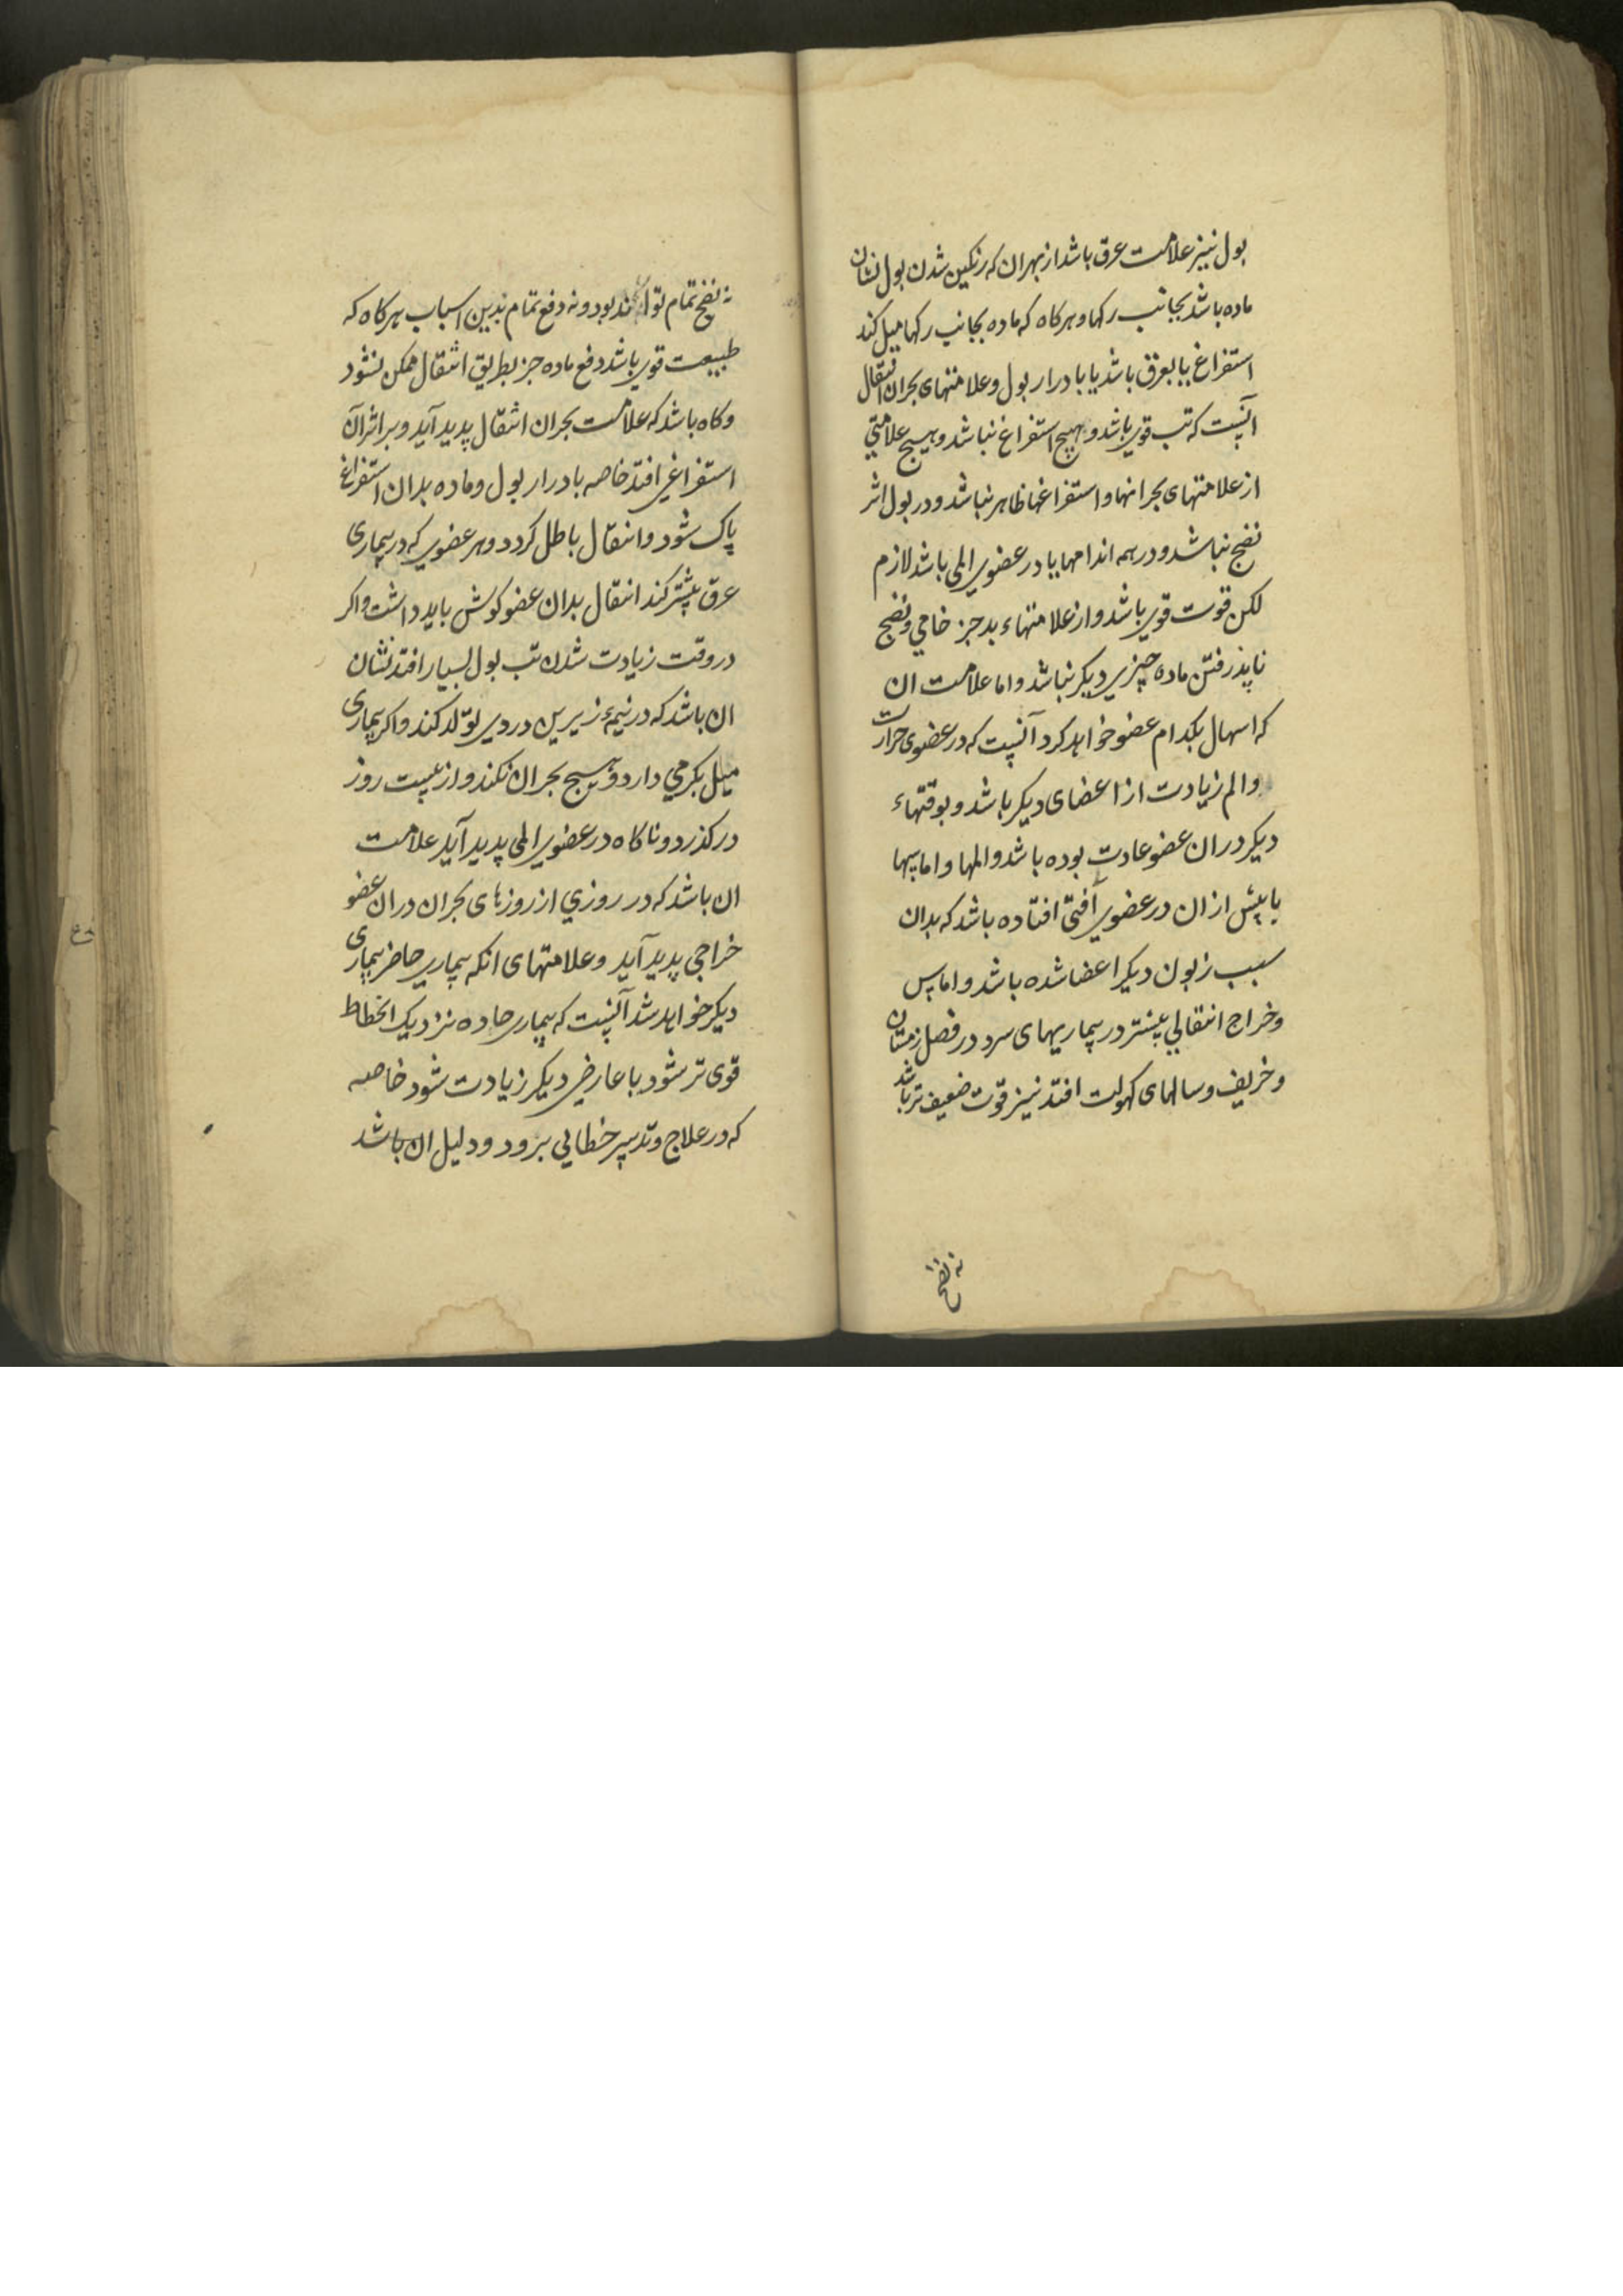 بول نیز علامت عرق باشد از بهر ان که رنکین شدن بول نشان
ماده باشد بجانب رکها و هرکاه که ماده بجانب رکها میل کند
استفراغ یا بعرق باشد یا بادرار بول و علامتهای بحران انتقال
آنست که تب قوی باشد و هیچ استفراغ نباشد و هیچ علامتی
از علامتهای بحرانها و استفراغها ظاهر نباشد و در بول اثر
نضج نباشد و در همه اندامها یا در عضوی المی باشد لازم
لکن قوت قوی باشد و از علامتهاء بد جز خامی و نضج
ناپذرفتن ماده چیزی دیکر نباشد و اما علامت ان
که اسهال بکدام عضو خواهد کرد آنست که در عضوی حرارت
والم زیادت از اعضای دیکر باشد و بوقتهاء
دیکر در ان عضو عادت بوده باشد والمها و اماسها
یا پیش از ان در عضوی آفتی افتاده باشد که بدان
سبب زبون دیکر اعضا شده باشد و اماس
و خراج انتقالی بیشتر در بیماریهای سرد در فصل زمستان
و خریف و سالهای کهولت افتد نیز قوت ضعیف تر باشد
نه نضج
نه نضج تمام تواند بود و نه دفع تمام بدین اسباب هرکاه که
طبیعت قوی باشد دفع ماده جز بطریق انتقال ممکن نشود
و کاه باشد که علامت بحران انتقال پدید آید و بر اثر آن
استفراغی افتد خاصه بادرار بول و ماده بدان استفراغ
پاک شود و انتقال باطل کردد و هر عضوی که در بیماری
عرق بیشتر کند انتقال بدان عضو کوش باید داشت و اکر
در وقت زیادت شدن تب بول بسیار افتد نشان
ان باشد که در نیمهٔ زیرین دردی تولّد کند و اکر بیماری
میل بکرمی دارد و هیچ بحران نکند و از بیست روز
درکذرد و ناکاه در عضوی المی پدید آید علامت
ان باشد که در روزی از روزهای بحران در ان عضو
خراجی پدید آید و علامتهای انکه بیماری حاضر بیماری
دیکر خواهد شد آنست که بیماری حاده نزدیک انحطاط
قوی تر شود با عارضی دیکر زیادت شود خاصه
که در علاج و تدبیر خطایی برود و دلیل ان باشد